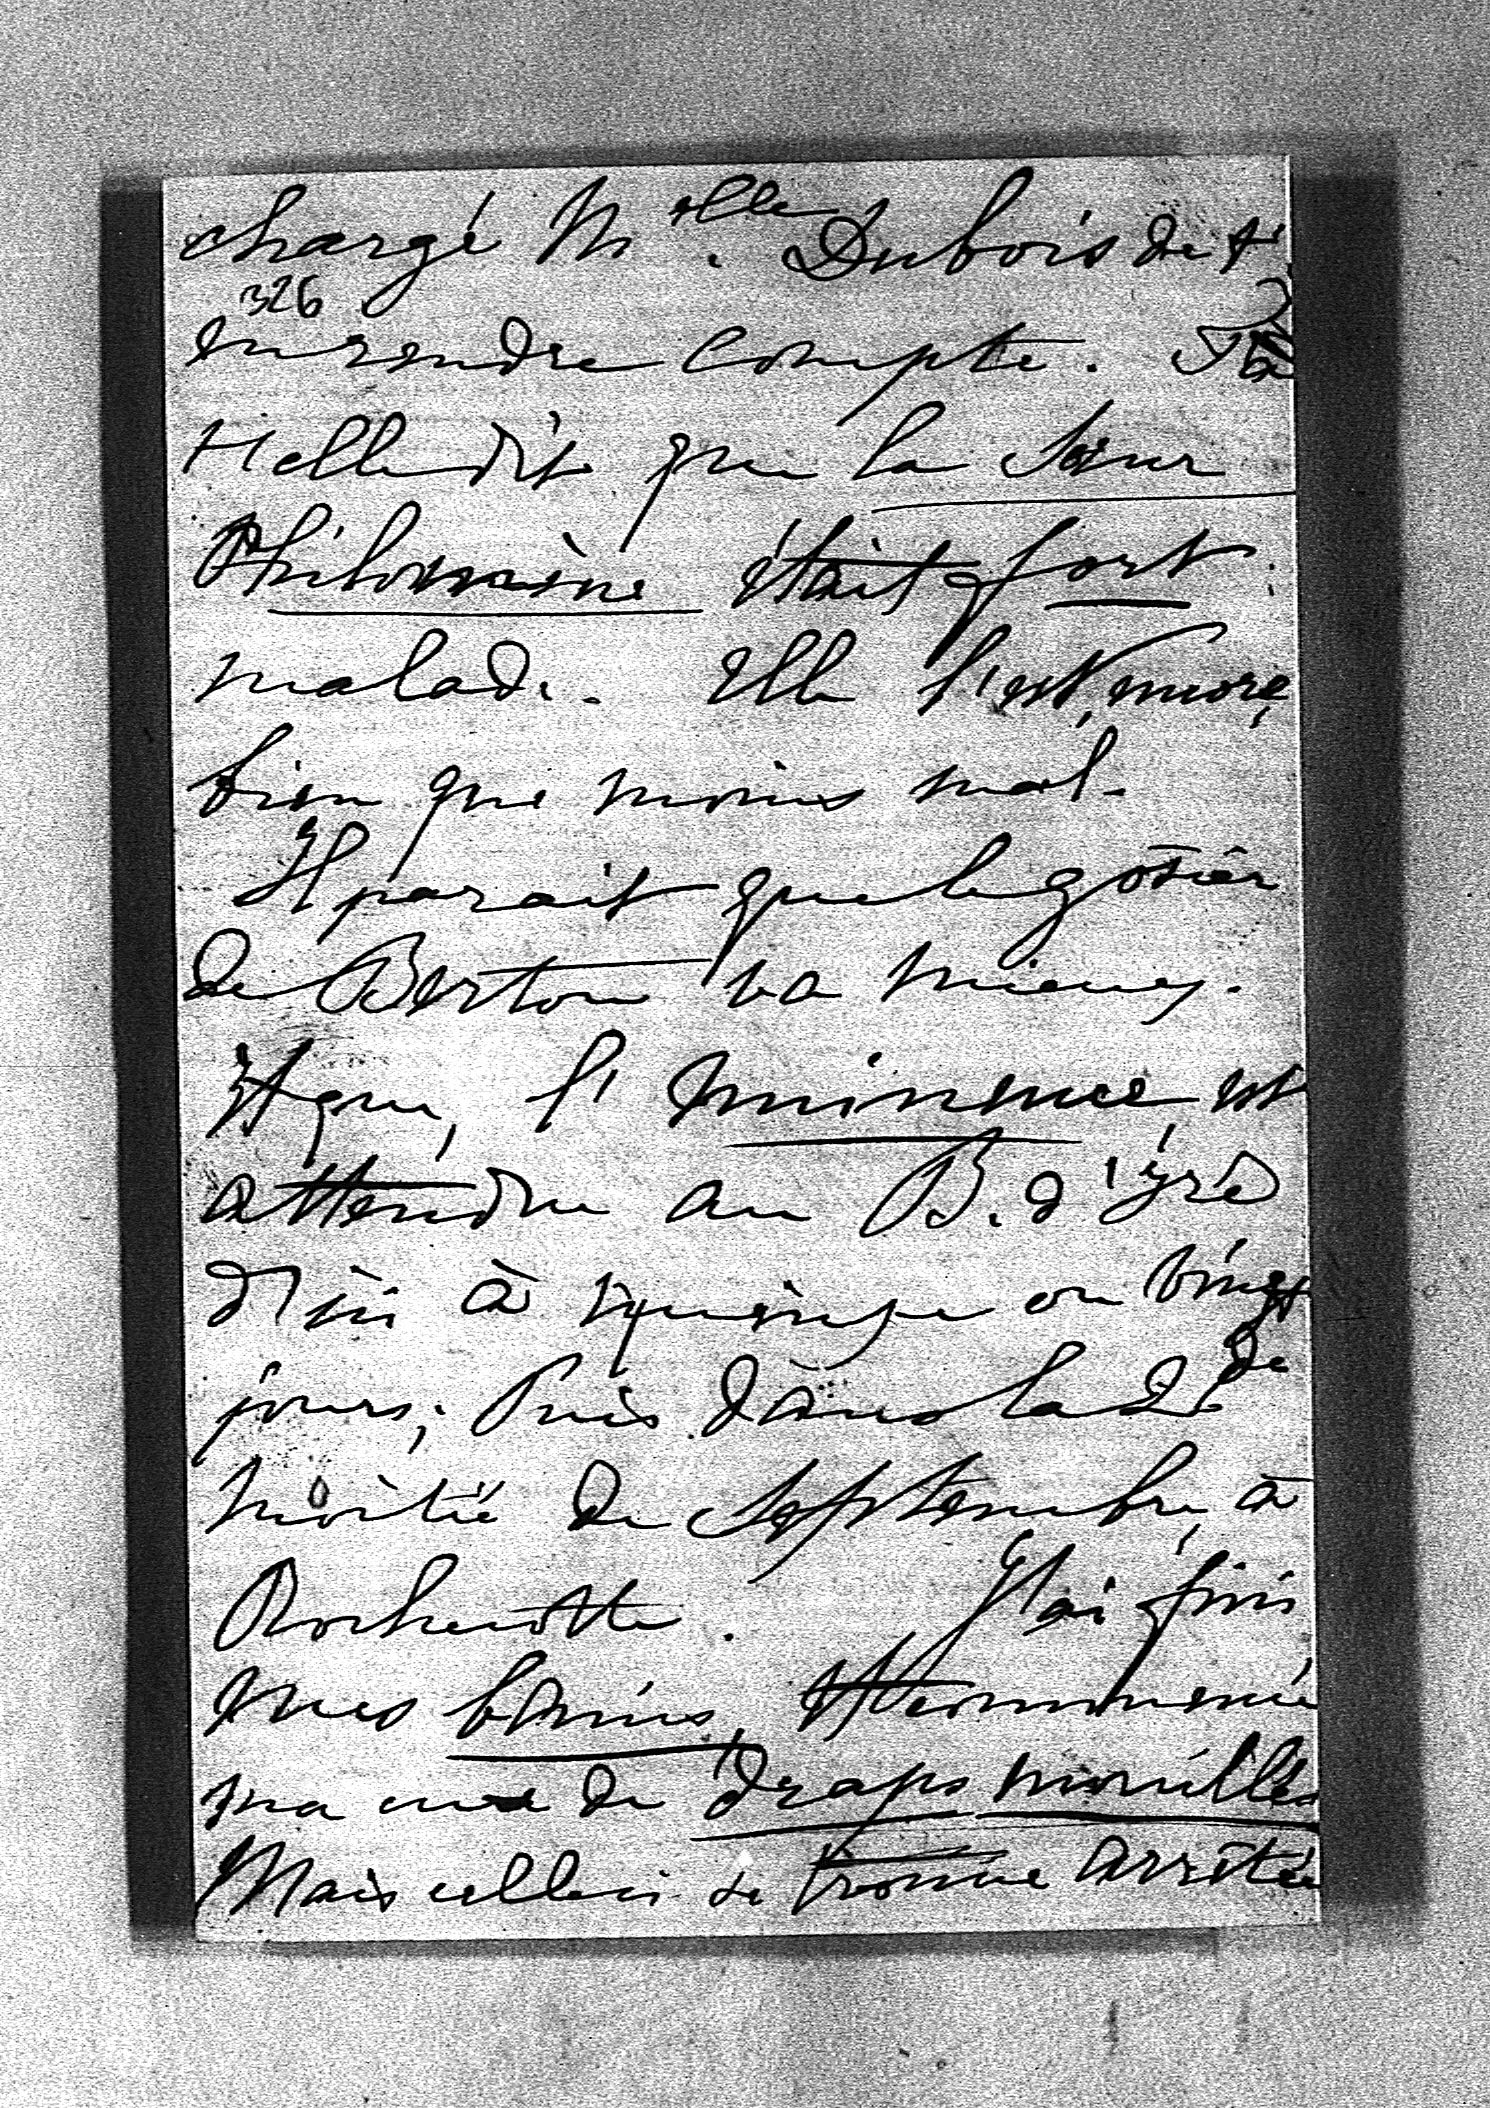 chargé Mlle. Dubois de t'
326
en rendre compte.
t'elle dit que la Sœur
Philomène était fort
malade. Elle l'est, encore,
bien que moins mal.
Il parait que le gosier
de Berton va mieux.
que, l'Eminence est
attendue au B. d'yré
d'ici à quinze ou vingt
jours; Puis dans la 2de
moitié de Septembre, à
Rochecotte. J'ai fini
mes bains, et terminé
ma cure de draps mouillés
Mais celle ci se trouve arrêtée